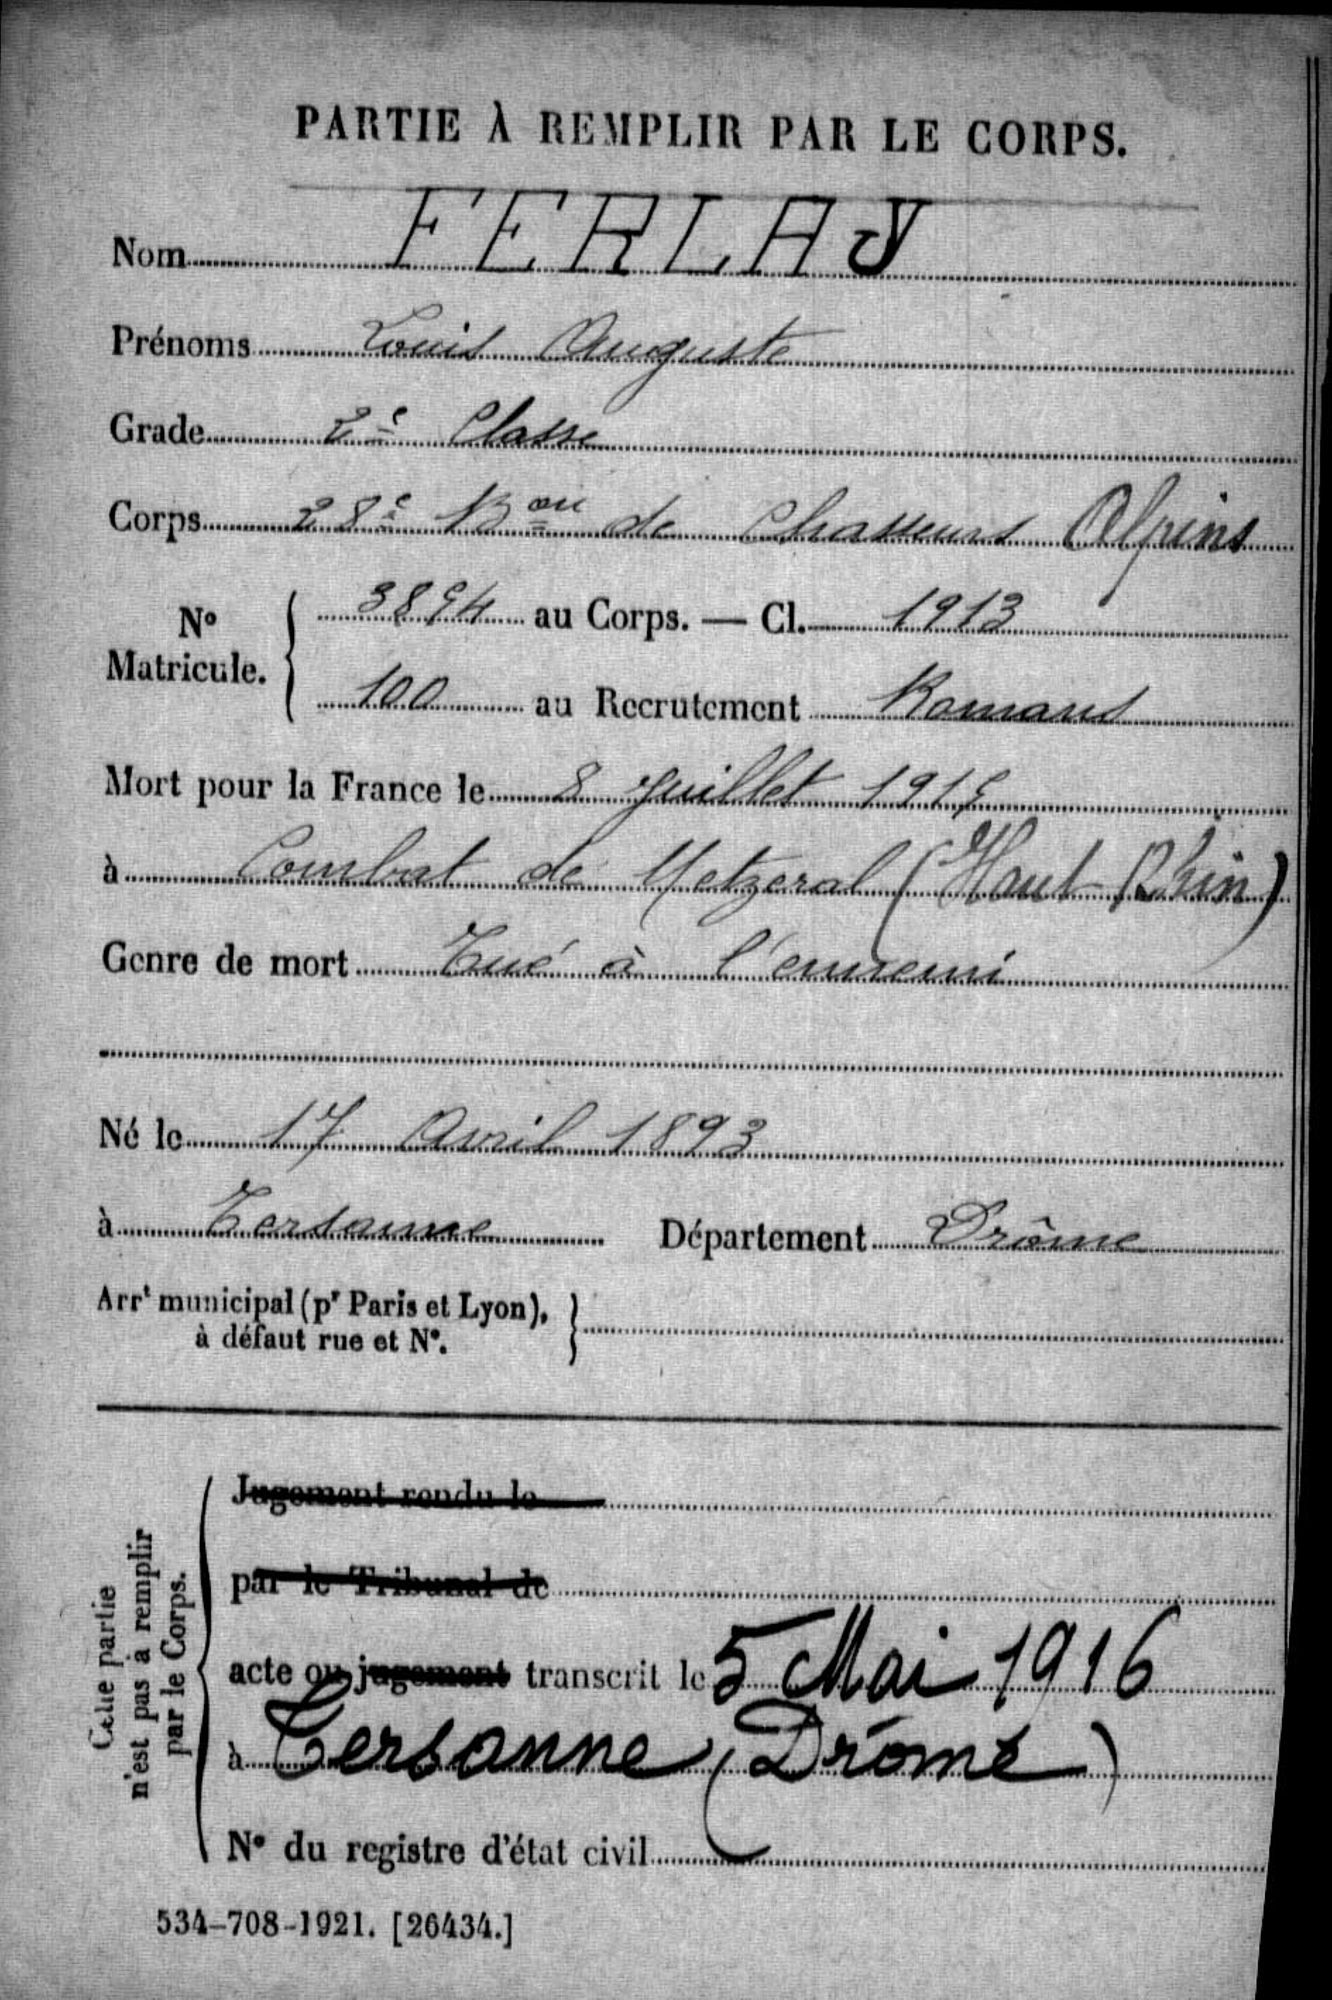 PARTIE À REMPLIR PAR LE CORPS.
Nom FERLAY
Prénoms Louis Auguste
Grade 2e Classe
Corps 28e Bon de Chasseurs Alpins
No Matricule. 3894 au Corps. — Cl. 1913
100 au Recrutement Romans
Mort pour la France le 8 Juillet 1915
à Combat de Metzeral (Haut-Rhin)
Genre de mort Tué à l'ennemi
Né le 17 Avril 1893
à Tersanne Département Drôme
Arrt municipal (pr Paris et Lyon),
à défaut rue et No.
Cette partie
n'est pas à remplir
par le Corps.
Jugement rendu le
par le Tribunal de
acte ou jugement transcrit le 5 Mai 1916
à Tersanne (Drôme)
No du registre d'état civil
534-708-1921. [26434.]